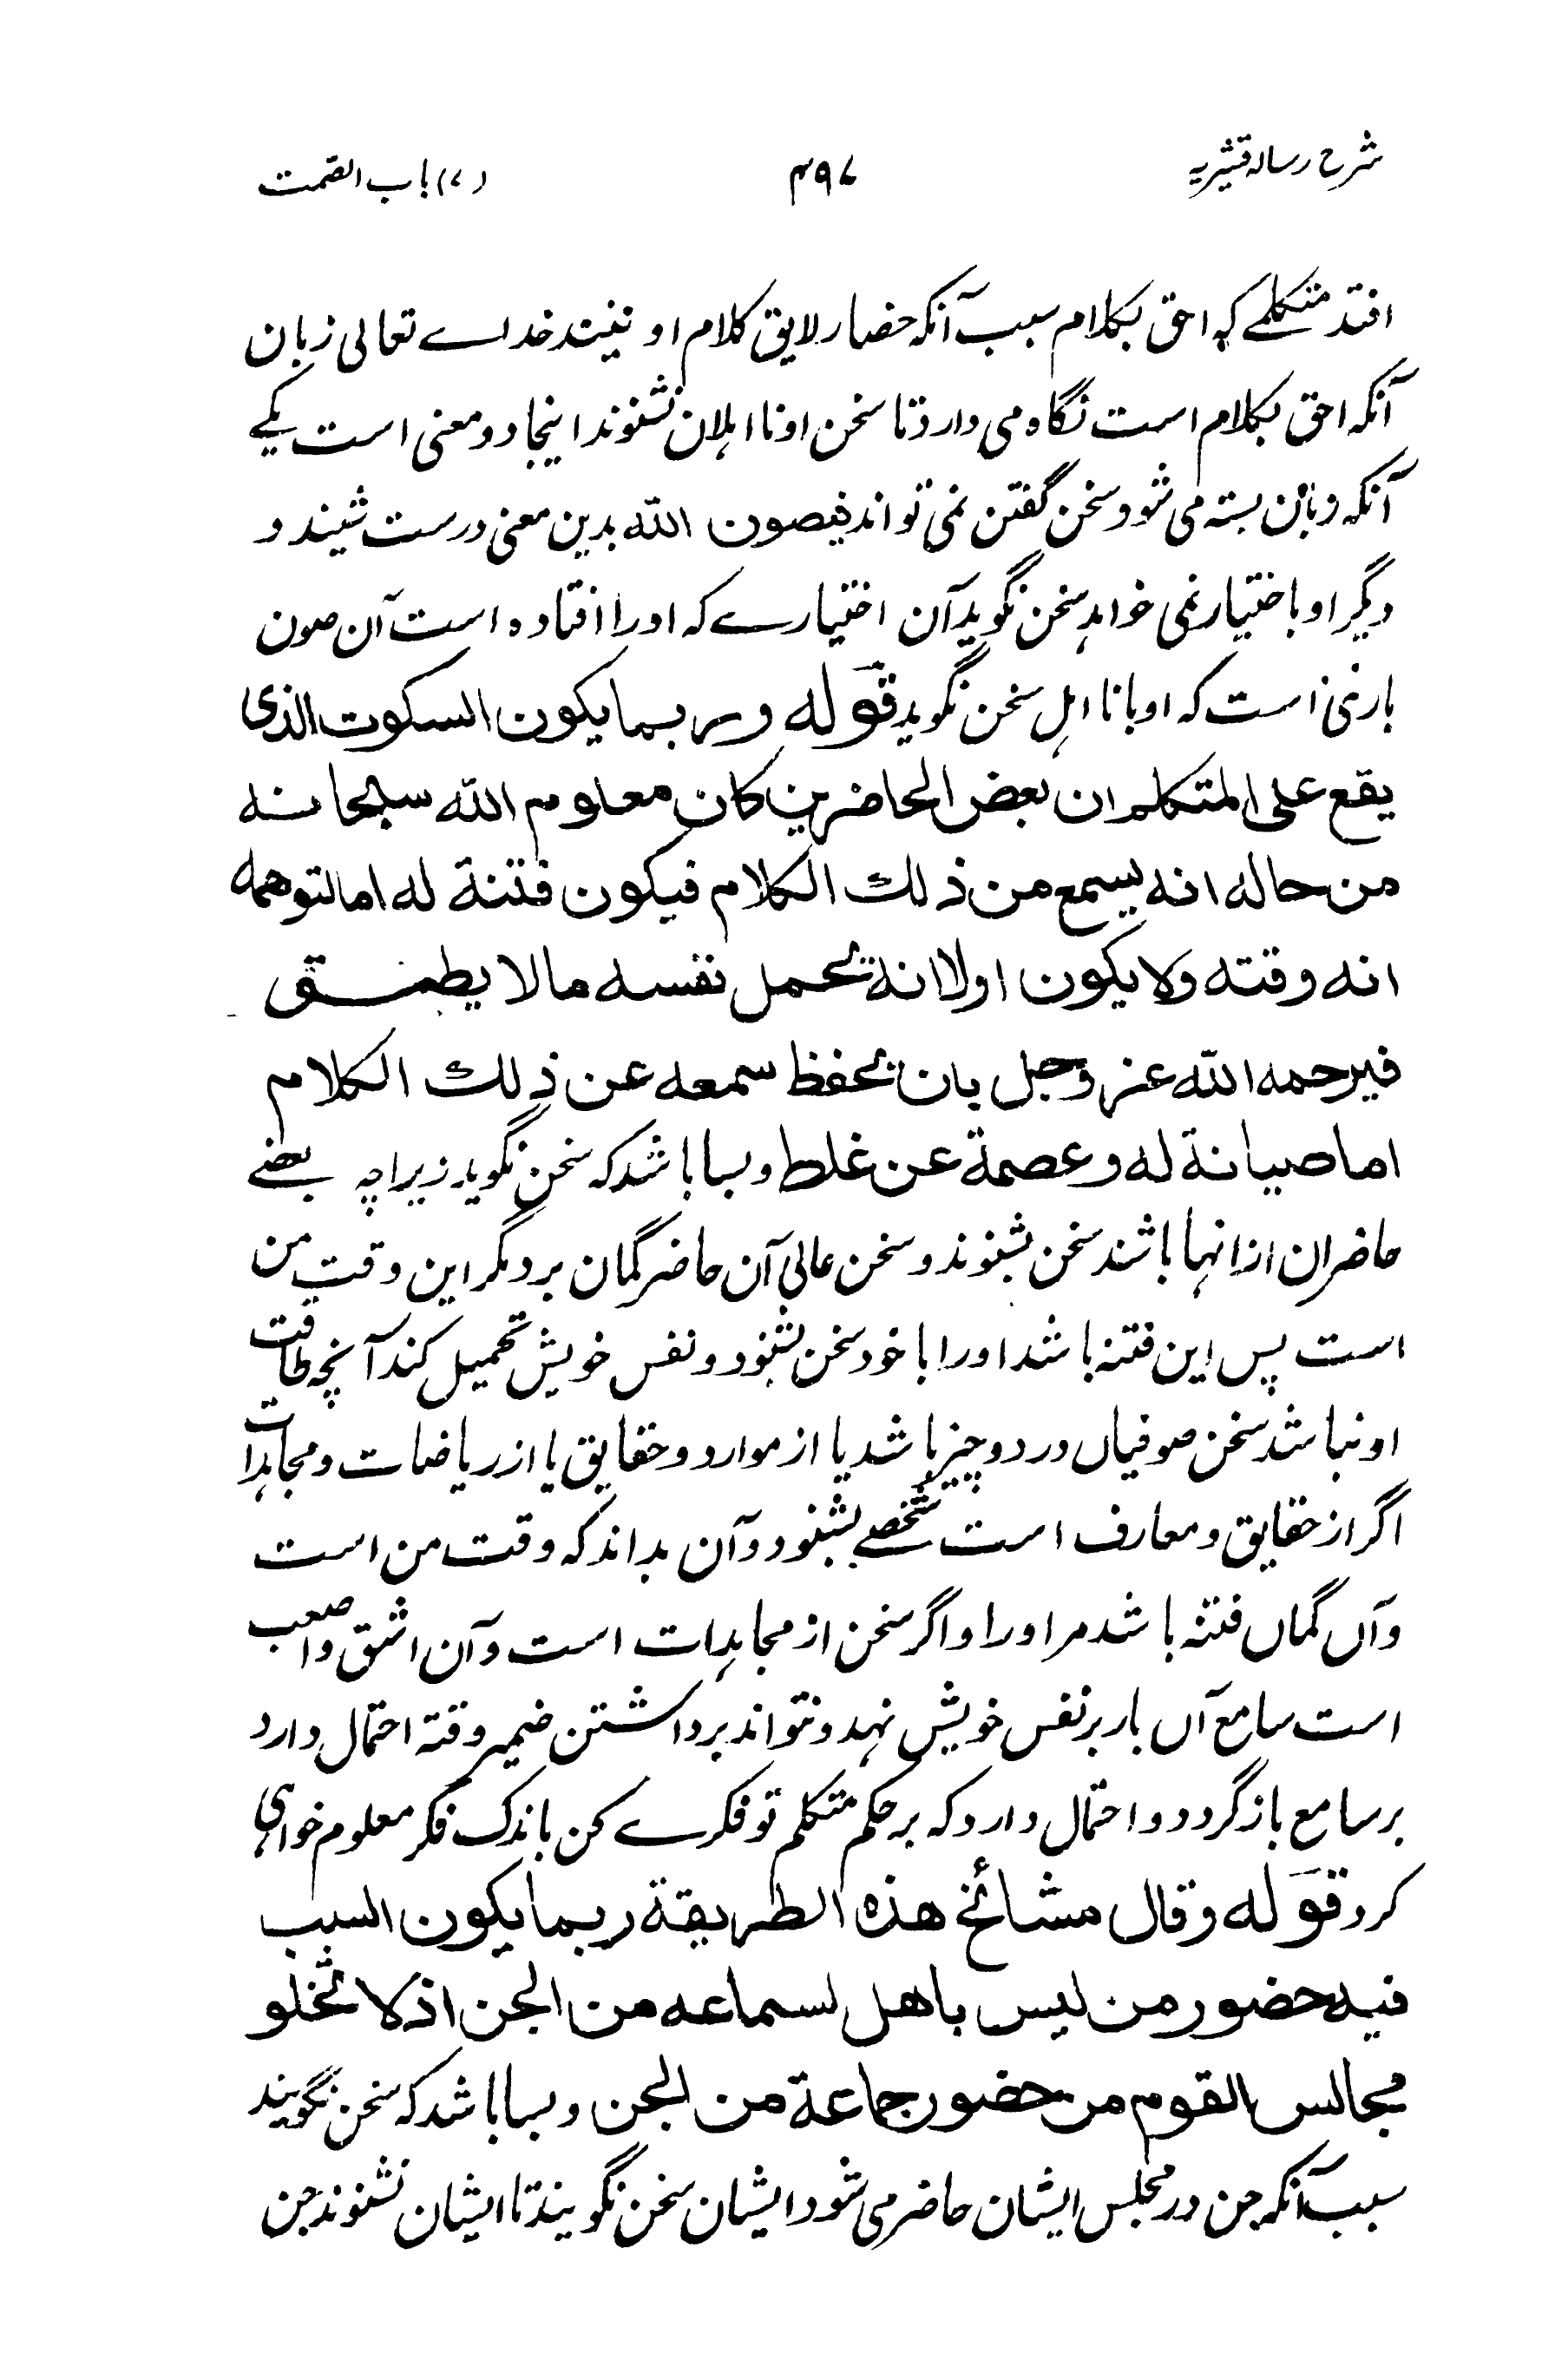 شرح رسالہ قشیریہ
۴۹۷
(۷) باب الصمت
افتد متکلمے کہ احق بکلام سبب آنکہ حضار لایق کلام او نیند خداے تعالی زبان
آنکہ احق بکلام است نگاہ می دارد تا سخن او نا اہلان نشنوند اینجا دو معنی است یکے
آنکہ زبان بستہ می شود و سخن گفتن نمی تواند فیصون اللہ بدین معنی درست شیند و
دیگر او باختیار نمی خواہد سخن نگوید آن اختیارے کہ او را افتادہ است آن صون
بارئ است کہ او با نا اہل سخن نگوید قولہ وربما یکون السکوت الذی
یقع علی المتکلم ان بعض الحاضرین کان معلوم اللہ سبحانہ
من حالہ انہ یسمع من ذلک الکلام فیکون فتنة لہ اما لتوهمه
انہ وقتہ ولا یکون اولانہ یحمل نفسہ مالا یطیق
فیرحمہ اللہ عزوجل بان یحفظ سمعہ عن ذلک الکلام
اما صیانة لہ وعصمة عن غلط و بسا باشد کہ سخن نگوید زیراچہ بعضے
حاضران ازانہا باشند سخن بشنوند و سخن عالی آن حاضر گمان برد مگر این وقت من
است پس این فتنہ باشد او را با خود سخن بشنود و نفس خویش تحمیل کند آنچہ طاقت
او نباشد سخن صوفیاں در دو چیز باشد یا از موارد و حقایق یا از ریاضات و مجاہدات
اگر از حقایق و معارف است شخصے بشنود و آن بداند کہ وقت من است
و آں گماں فتنہ باشد مر او را و اگر سخن از مجاہدات است و آن اشق و اصعب
است سامع آں بار بر نفس خویش نہد و نتواند برداشتن ضمیر وقتہ احتمال دارد
بر سامع باز گردد و احتمال دارد کہ بر حکم متکلم تو فکرے کن باندک فکر معلوم خواہی
کرد قولہ وقال مشائخ هذه الطریقة ربما یکون السبب
فیہ حضور من لیس باهل لسماعہ من الجن اذ لا تخلو
مجالس القوم من حضور جماعة من الجن و بسا باشد کہ سخن نگویند
سبب آنکہ جن در مجلس ایشان حاضر می شود ایشان سخن نگویند تا ایشان نشنوند جن